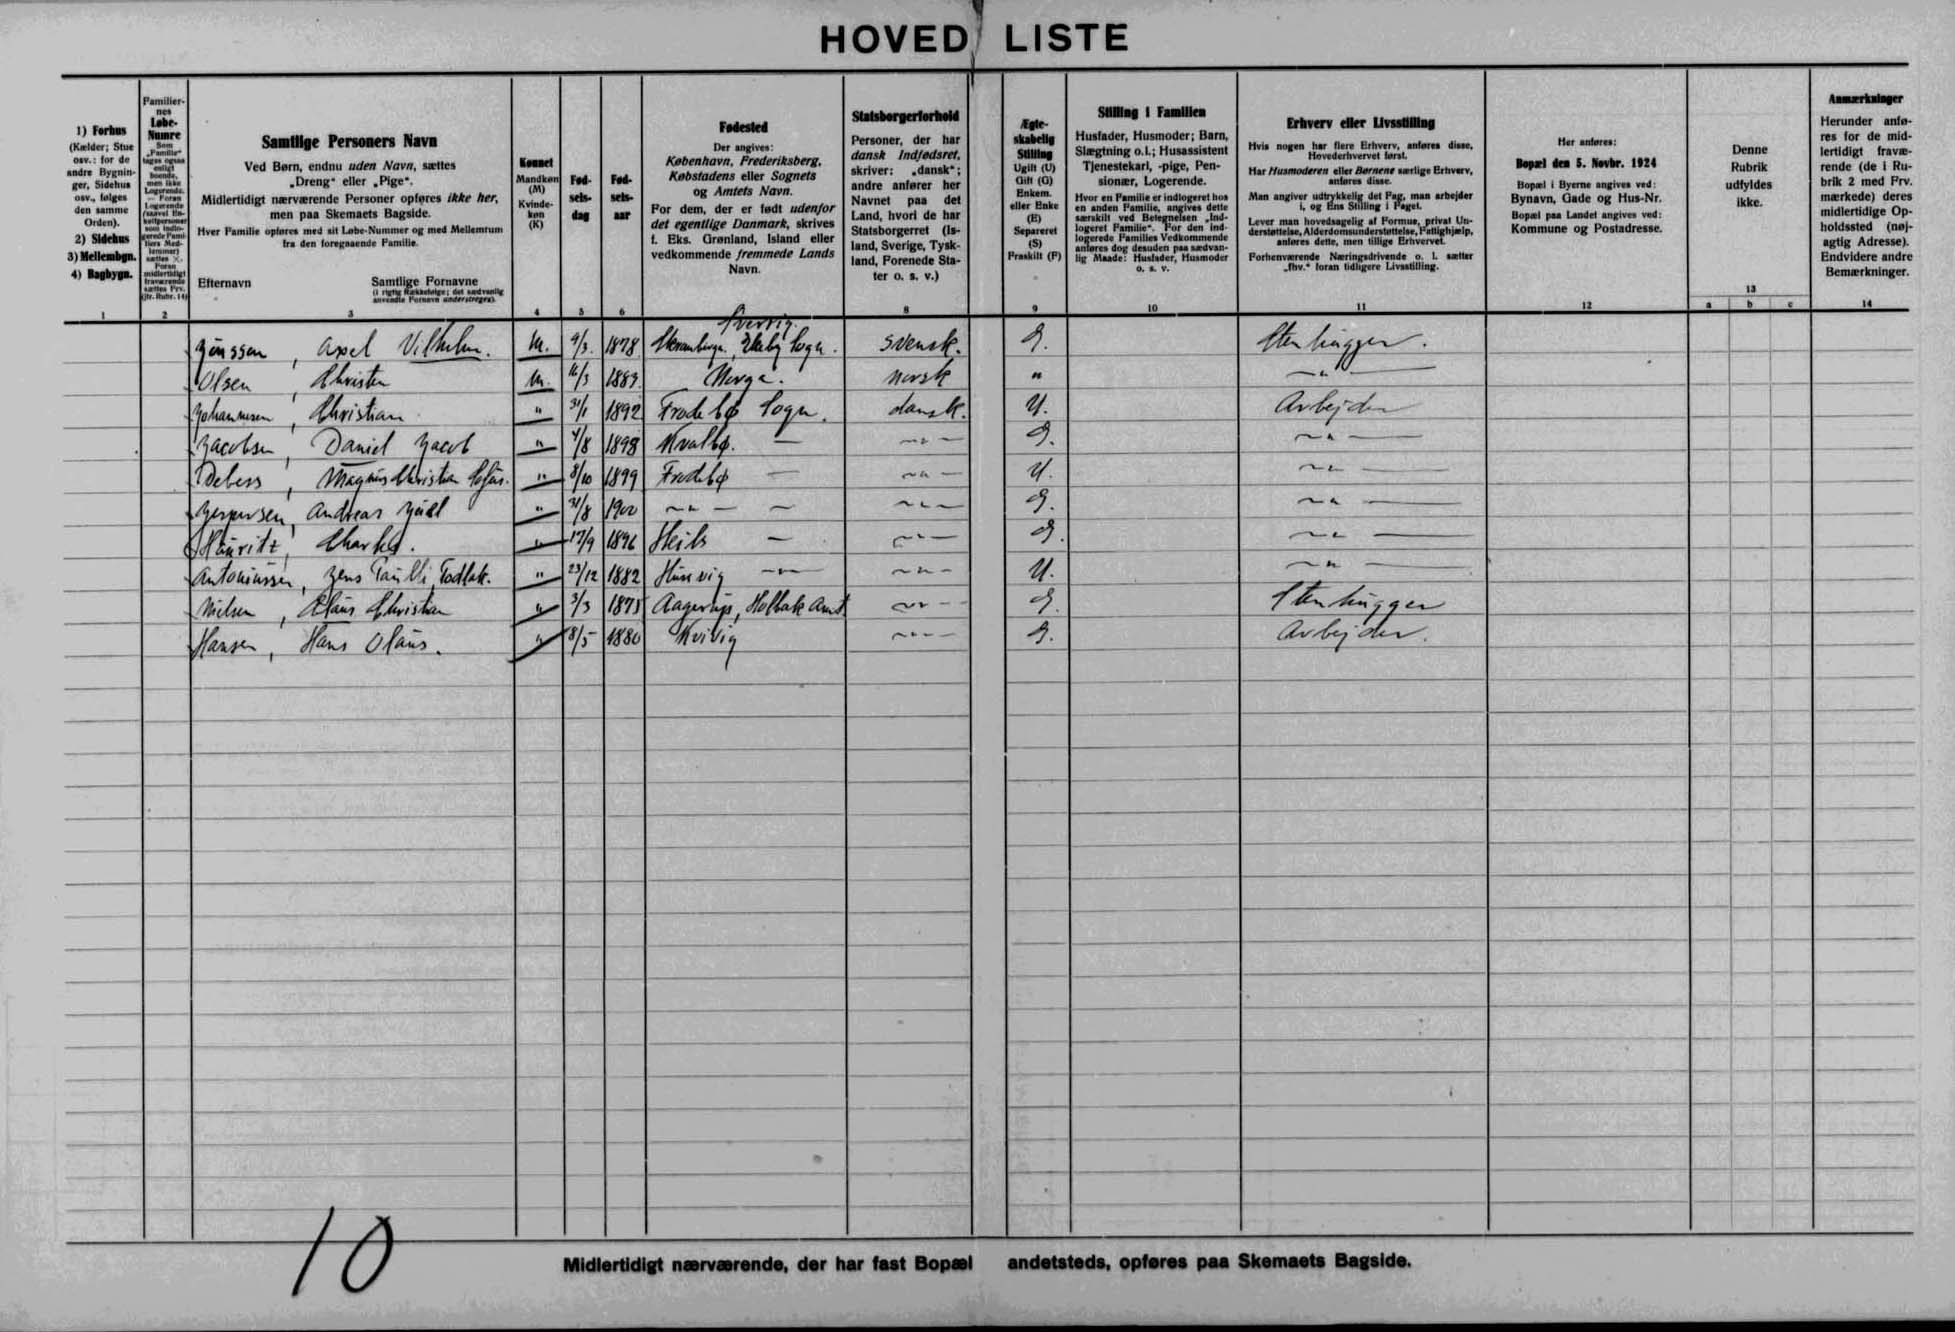 HOVED LISTE
1) Forhus
(Kælder; Stue
osv.: for de
andre Bygnin-
ger, Sidehus
osv., følges
den samme
Orden).
2) Sidehus
3) Mellembgn.
4) Bagbygn.
1
Familier-
nes
Løbe-
Numre
Som
„Familie"
tages ogsaa
enligt
boende,
men ikke
Logerende.
— Foran
Logerende
(saavel En-
keltpersoner
som indlo-
gerede Fami-
liers Med-
lemmer)
sættes ×.
Foran
midlertidigt
fraværende
sættes Frv.
(jfr. Rubr. 14)
2
Samtlige Personers Navn
Ved Børn, endnu uden Navn, sættes
„Dreng" eller „Pige".
Midlertidigt nærværende Personer opføres ikke her,
men paa Skemaets Bagside.
Hver Familie opføres med sit Løbe-Nummer og med Mellemrum
fra den foregaaende Familie.
Efternavn Samtlige Fornavne
(i rigtig Rækkefølge; det sædvanlig
anvendte Fornavn understreges).
3
Kønnet
Mandkøn
(M)
Kvinde-
køn
(K)
4
Fød-
sels-
dag
5
Fød-
sels-
aar
6
Fødested
Der angives:
København, Frederiksberg,
Købstadens eller Sognets
og Amtets Navn.
For dem, der er født udenfor
det egentlige Danmark, skrives
f. Eks. Grønland, Island eller
vedkommende fremmede Lands
Navn.
Statsborgerforhold
Personer, der har
dansk Indfødsret,
skriver: „dansk";
andre anfører her
Navnet paa det
Land, hvori de har
Statsborgerret (Is-
land, Sverige, Tysk-
land, Forenede Sta-
ter o. s. v.)
8
Ægte-
skabelig
Stilling
Ugift (U)
Gift (G)
Enkem.
eller Enke
(E)
Separeret
(S)
Fraskilt (F)
9
Stilling i Familien
Husfader, Husmoder; Barn,
Slægtning o.l.; Husassistent
Tjenestekarl, -pige, Pen-
sionær, Logerende.
Hvor en Familie er indlogeret hos
en anden Familie, angives dette
særskilt ved Betegnelsen „Ind-
logeret Familie". For den ind-
logerede Families Vedkommende
anføres dog desuden paa sædvan-
lig Maade: Husfader, Husmoder
o. s. v.
10
Erhverv eller Livsstilling
Hvis nogen har flere Erhverv, anføres disse,
Hovederhvervet først.
Har Husmoderen eller Børnene særlige Erhverv,
anføres disse.
Man angiver udtrykkelig det Fag, man arbejder
i, og Ens Stilling i Faget.
Lever man hovedsagelig af Formue, privat Un-
derstøttelse, Alderdomsunderstøttelse, Fattighjælp,
anføres dette, men tillige Erhvervet.
Forhenværende Næringsdrivende o. l. sætter
„fhv." foran tidligere Livsstilling.
11
Her anføres:
Bopæl den 5. Novbr. 1924
Bopæl i Byerne angives ved:
Bynavn, Gade og Hus-Nr.
Bopæl paa Landet angives ved:
Kommune og Postadresse.
12
Denne
Rubrik
udfyldes
ikke.
13
a b c
Anmærkninger
Herunder anfø-
res for de mid-
lertidigt fravæ-
rende (de i Ru-
brik 2 med Frv.
mærkede) deres
midlertidige Op-
holdssted (nøj-
agtig Adresse).
Endvidere andre
Bemærkninger.
14
Axel Vilhelm. M. 9/3. 1878 Sogn. svensk. G. Stenhugger.
Olsen Christen M. 16/3 1883 Norge. norsk " —"—
Johannesen, Christian " 31/1 1892 Frodebø Sogn. dansk. U. Arbejder
Jacobsen, Daniel Jacob " 4/8 1898 Kvalbø. — —"— G. —"—
Debess, Magnus Christian " 8/10 1899 Frodebø — —"— U. —"—
Jespersen, Andreas " 31/8 1900 —"— — —"— G. —"—
Hauritz, " 17/9 1896 — —"— G. —"—
Antoniussen, Jens " 23/12 1882 Husevig —"— —"— U. —"—
Nielsen, Claus Christian " 3/3 1875 Aagerup, Holbæk Amt —"— G. Stenhugger
Hansen, Hans Olaus. " 8/5 1880 Kvivig —"— G. Arbejder.
10
Midlertidigt nærværende, der har fast Bopæl andetsteds, opføres paa Skemaets Bagside.